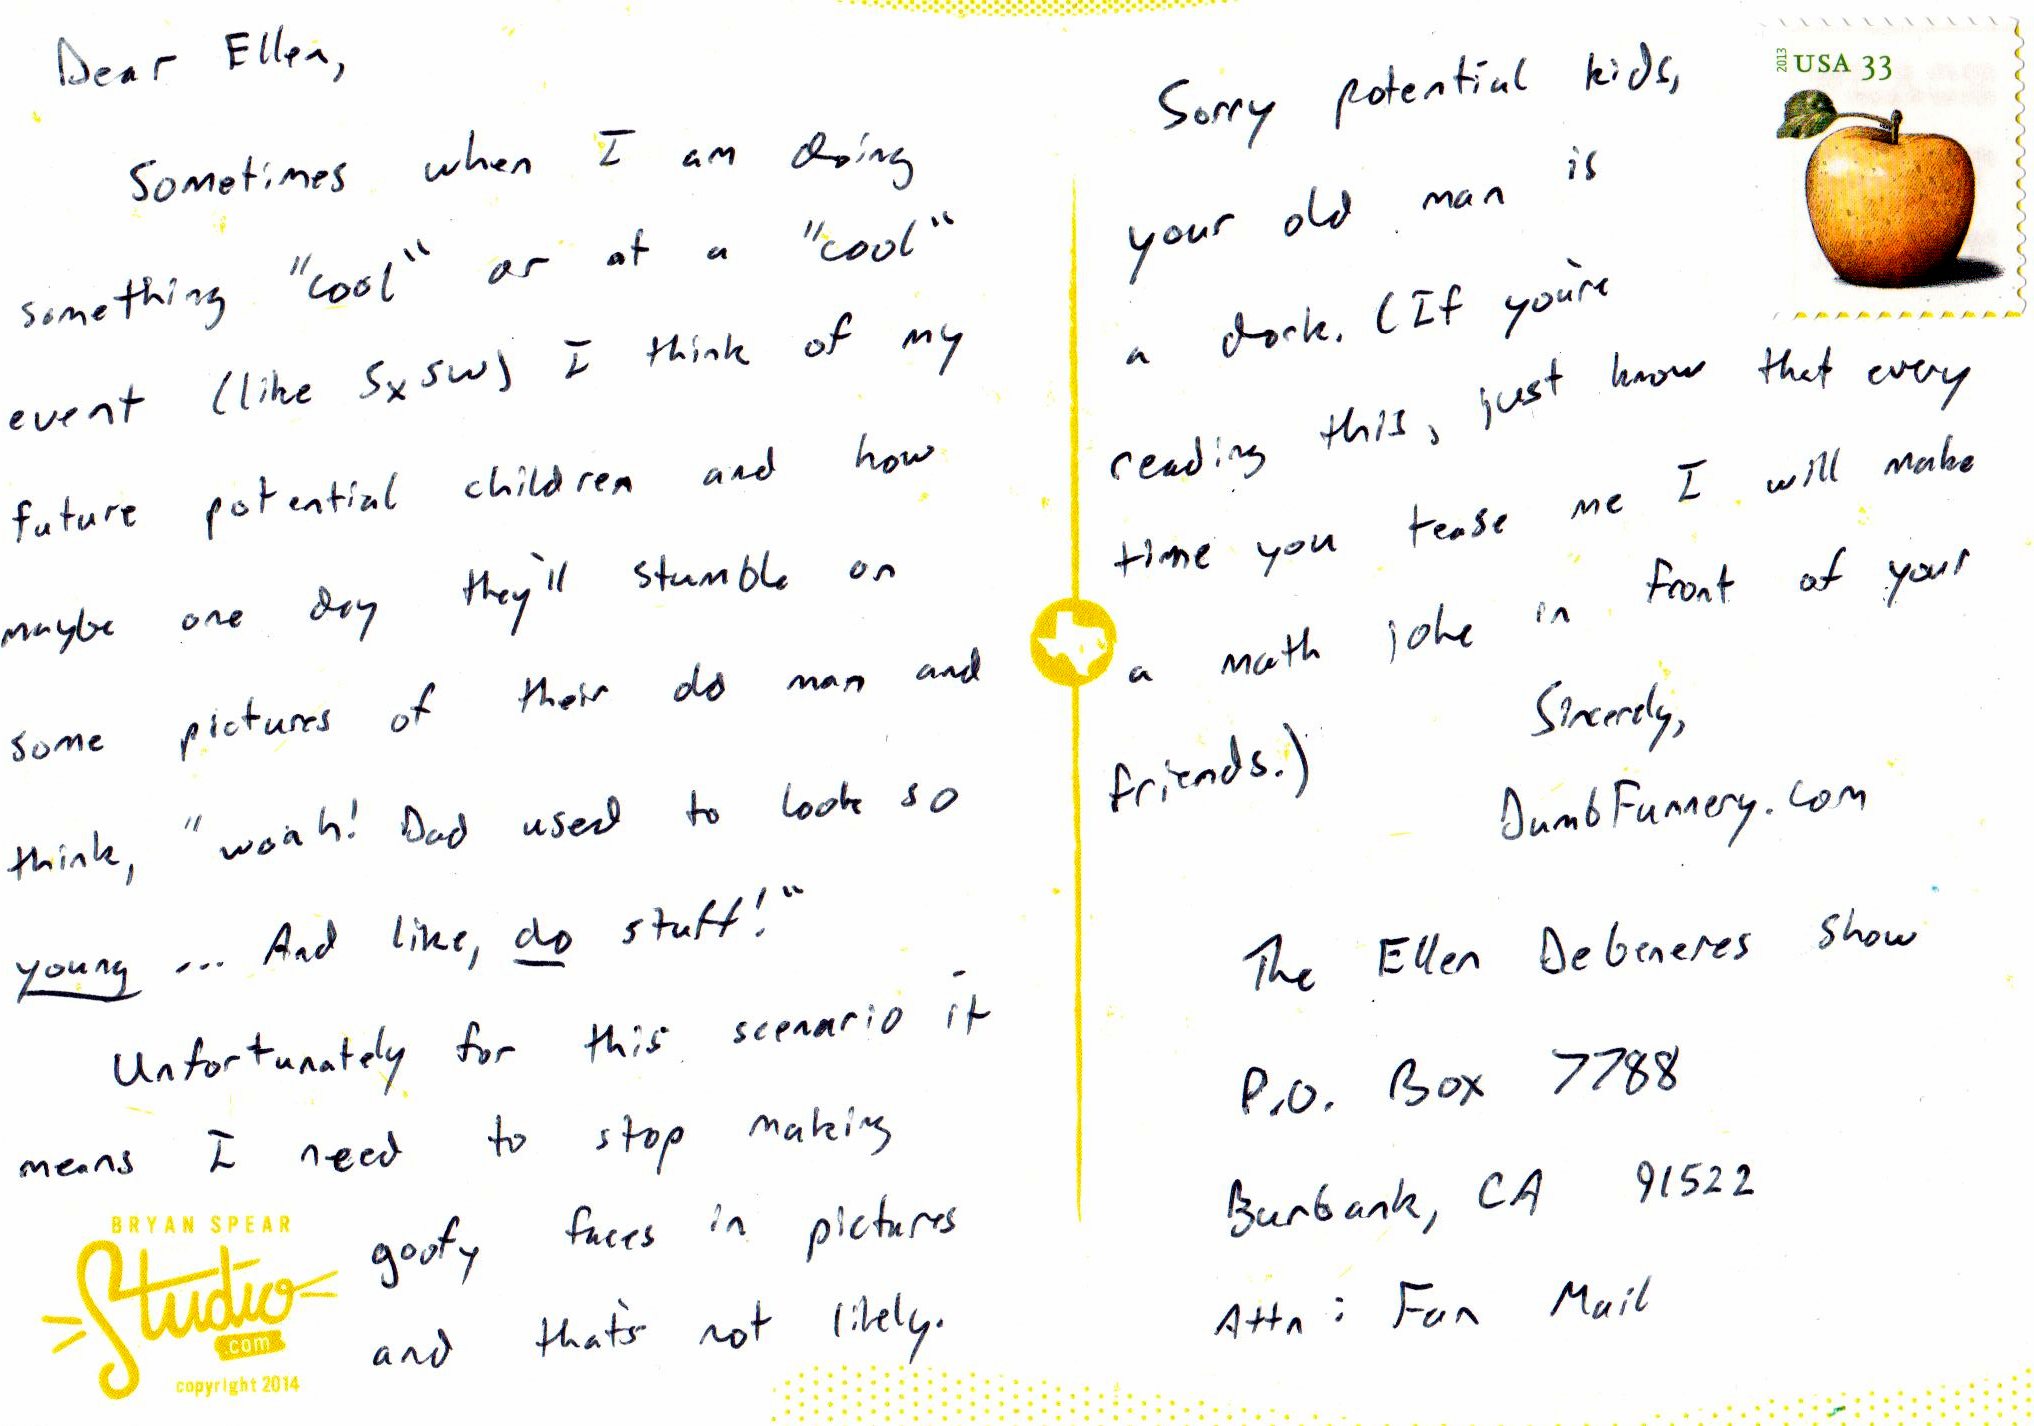 Dear Ellen,
Sometimes when I am doing
something "cool" or at a "cool"
event (like SxSW) I think of my
future potential children and how
maybe one day they'll stumble on
some pictures of their old man and
think, "woah! Dad used to look so
young ... And like, do stuff!"
Unfortunately for this scenario it
means I need to stop making
goofy faces in pictures
and that's not likely.
BRYAN SPEAR
Studio
.com
copyright 2014
Sorry potential kids,
your old man is
a dork. (If you're
reading this, just know that every
time you tease me I will make
a math joke in front of your
friends.)
Sincerely,
DumbFunnery.com
The Ellen Degeneres Show
P.O. Box 7788
Burbank, CA 91522
Attn: Fan Mail
2013
USA 33